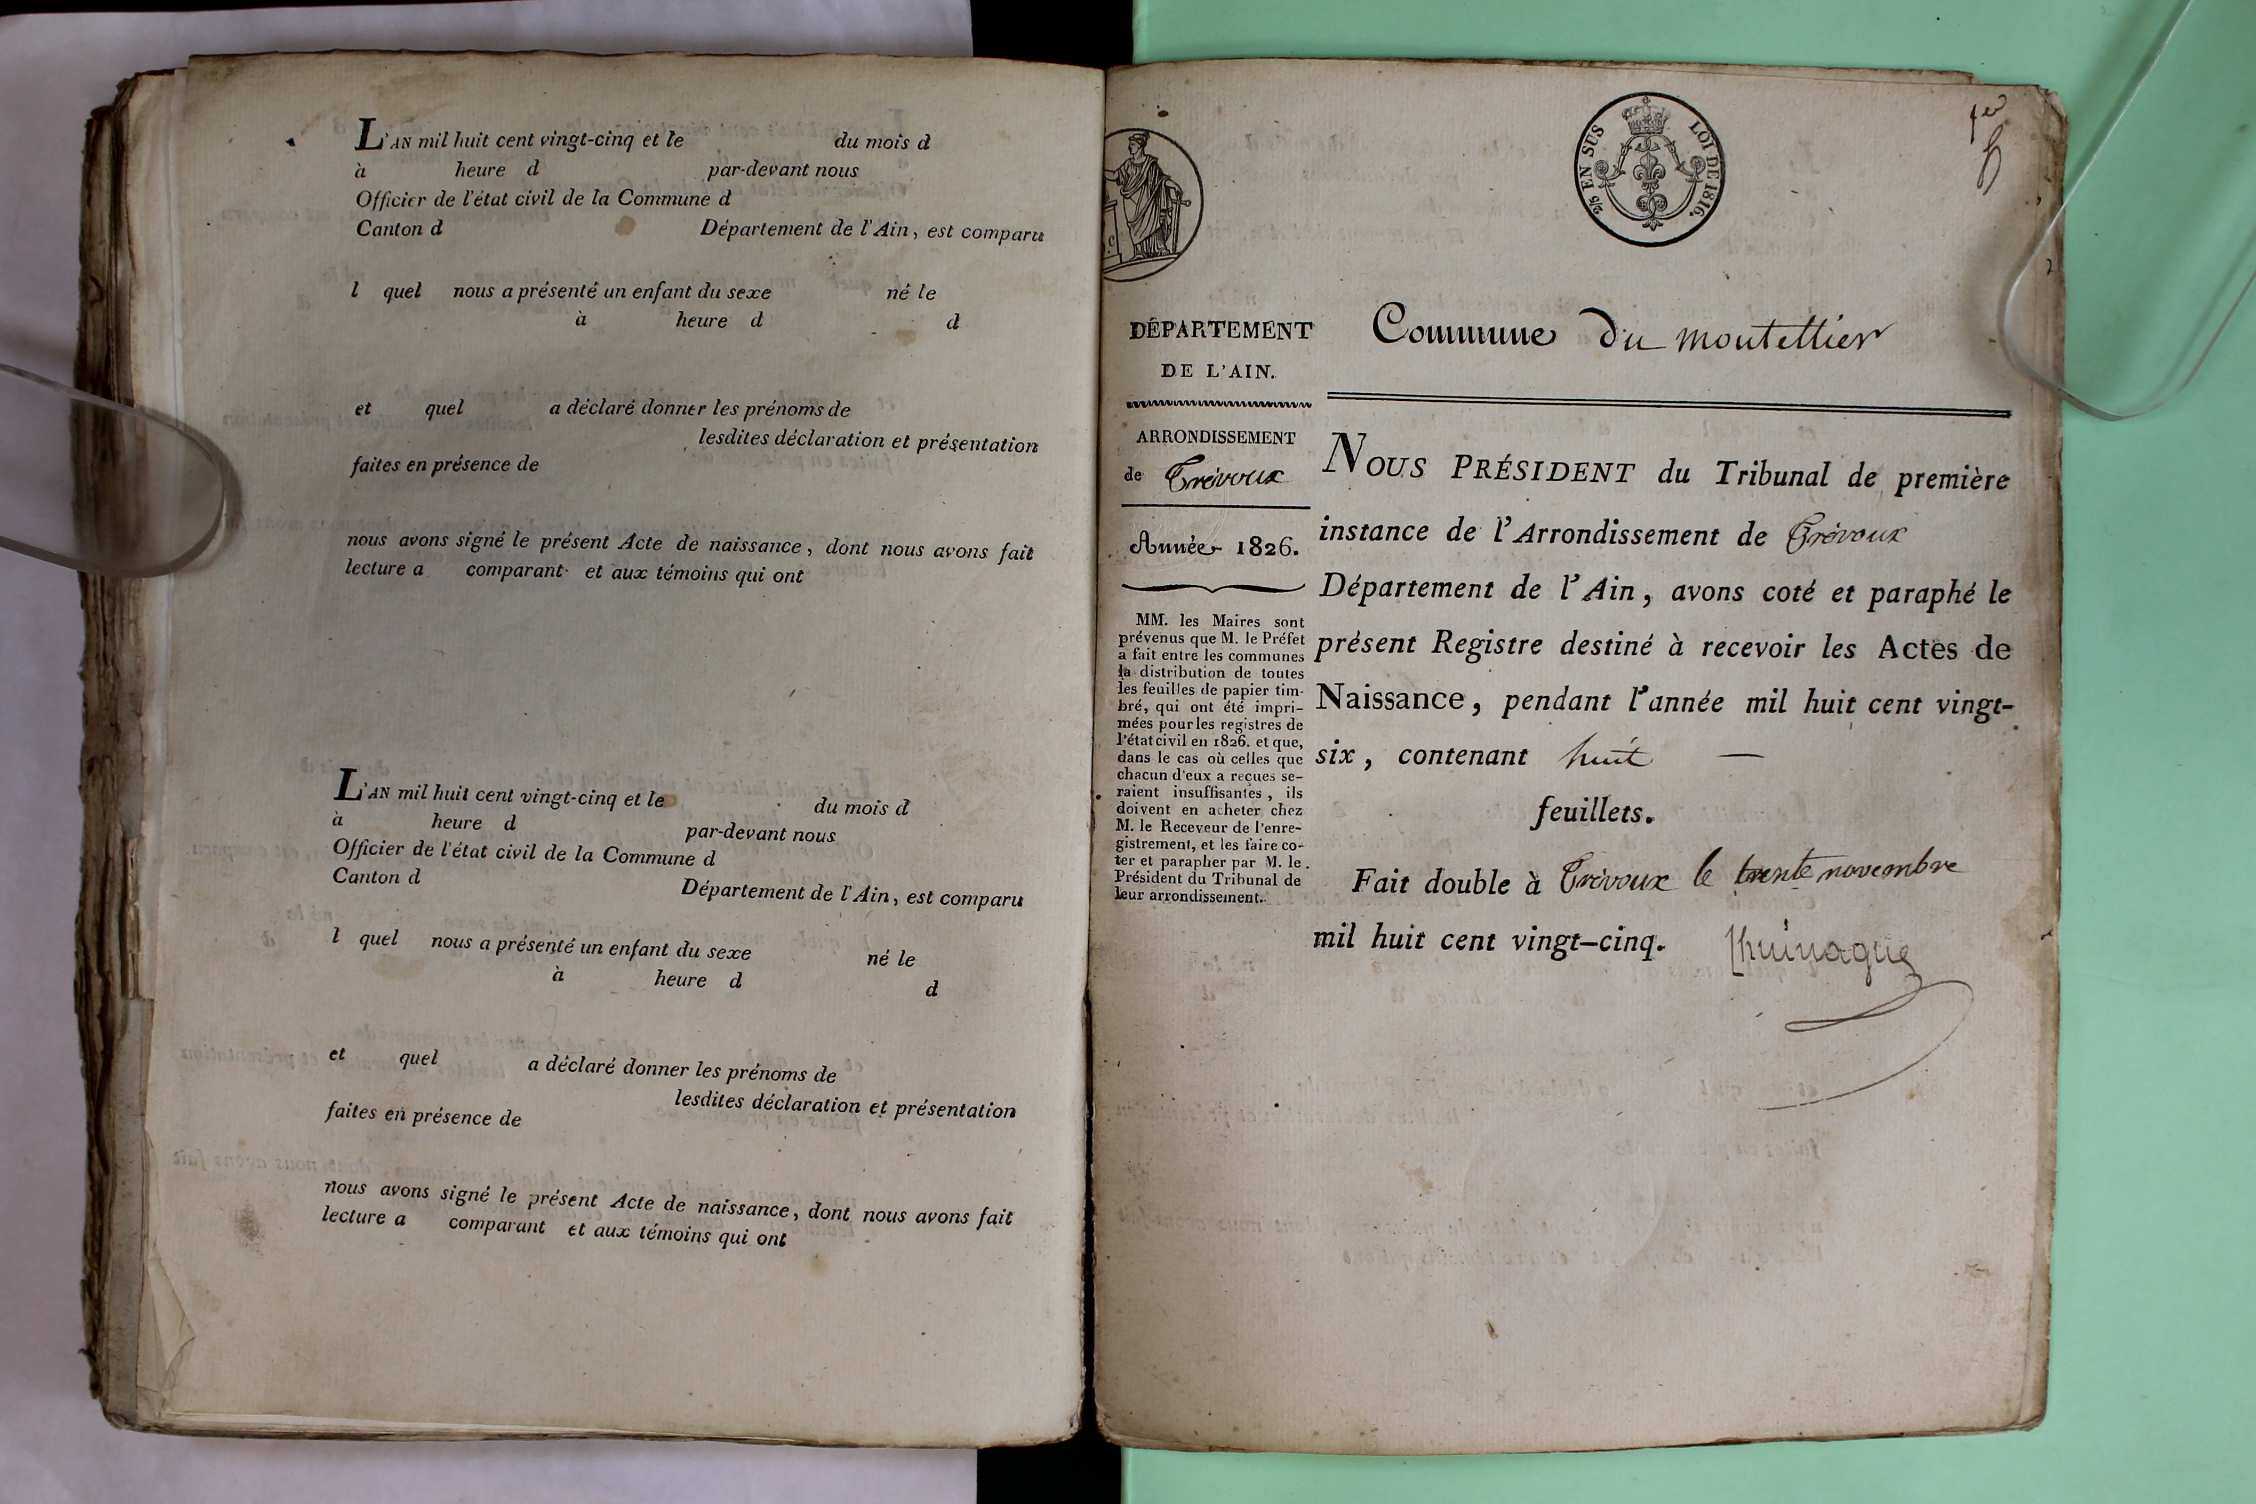 L'AN mil huit cent vingt-cinq et le du mois d
à heure d par-devant nous
Officier de l'état civil de la Commune d
Canton d Département de l'Ain, est comparu
l quel nous a présenté un enfant du sexe né le
à heure d d
et quel a déclaré donner les prénoms de
lesdites déclaration et présentation
faites en présence de
nous avons signé le présent Acte de naissance, dont nous avons fait
lecture a comparant et aux témoins qui ont
L'AN mil huit cent vingt-cinq et le du mois d
à heure d par-devant nous
Officier de l'état civil de la Commune d
Canton d Département de l'Ain, est comparu
l quel nous a présenté un enfant du sexe né le
à heure d d
et quel a déclaré donner les prénoms de
lesdites déclaration et présentation
faites en présence de
nous avons signé le présent Acte de naissance, dont nous avons fait
lecture a comparant et aux témoins qui ont
2/5 EN SUS LOI DE 1816.
1er
DÉPARTEMENT
DE L'AIN.
ARRONDISSEMENT
de Trévoux
Année 1826.
MM. les Maires sont
prévenus que M. le Préfet
a fait entre les communes
la distribution de toutes
les feuilles de papier tim-
bré, qui ont été impri-
mées pour les registres de
l'état civil en 1826. et que,
dans le cas où celles que
chacun d'eux a reçues se-
raient insuffisantes, ils
doivent en acheter chez
M. le Receveur de l'enre-
gistrement, et les faire co-
ter et parapher par M. le
Président du Tribunal de
leur arrondissement.
Commune du montellier
NOUS PRÉSIDENT du Tribunal de première
instance de l'Arrondissement de Trévoux
Département de l'Ain, avons coté et paraphé le
présent Registre destiné à recevoir les Actes de
Naissance, pendant l'année mil huit cent vingt-
six, contenant huit —
feuillets.
Fait double à Trévoux le trente novembre
mil huit cent vingt-cinq.